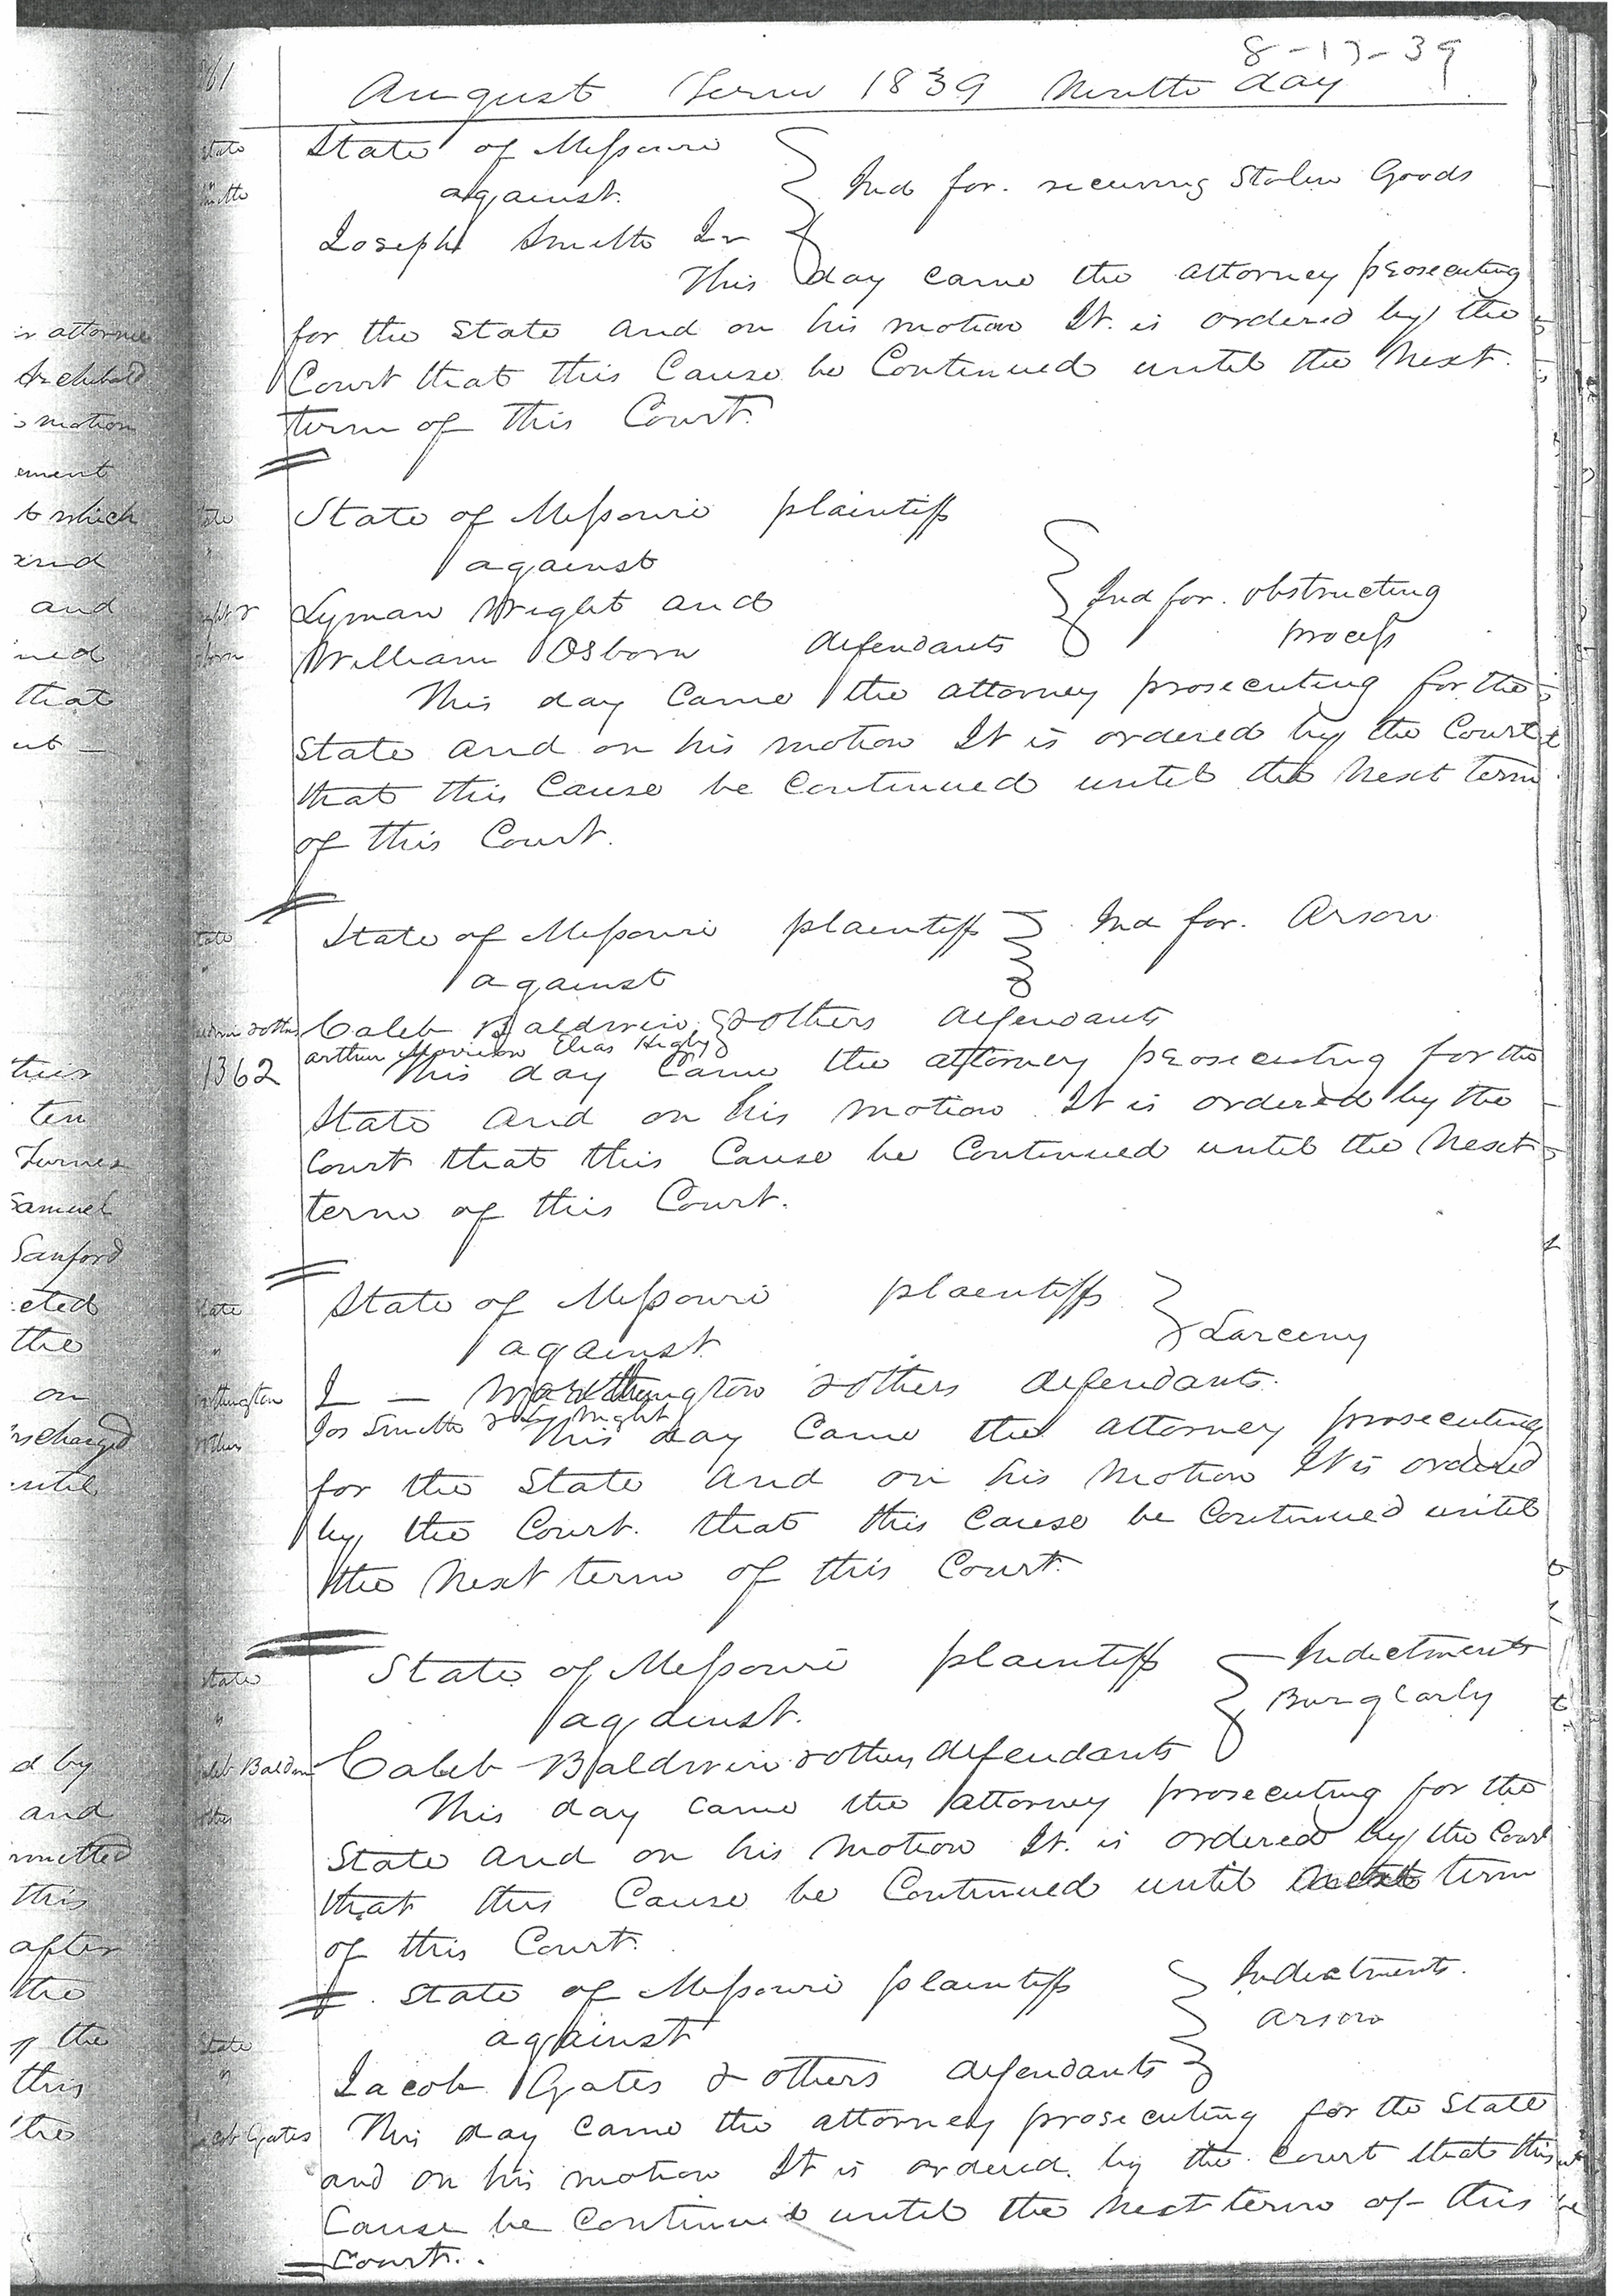 8-17-39
61
August Term 1839 Ninth day
State of Missouri
against.
Joseph Smith Jr
Ind for. receiving Stolen Goods
This day came the attorney prosecuting
for the State and on his motion It. is ordered by the
Court that this Cause be Continued until the Next.
term of this Court.
State of Missouri plaintiff
against
Lyman Wright and
William Osborn defendants
Ind for. obstructing
process
This day Came the attorney prosecuting for the
State and on his motion It is ordered by the Court
that this Cause be Continued until the Next term
of this Court.
State of Missouri plaintiff Ind for. Arson
against
Caleb Baldwin & others defendants
arthur Morrison Elias Higby
1362
This day Came the attorney prosecuting for the
State and on his motion It is ordered by the
Court that this Cause be Continued until the Next
term of this Court.
State of Missouri plaintiff
against.
Larceny
J — Worthington & others defendants.
Jos Smith & Ly Wright
This day Came the attorney prosecuting
for the State and on his Motion It is ordered
by the Court. that this Cause be Continued until
the Next term of this Court.
State of Missouri plaintiff Indictments
against.
Burglarly
Caleb Baldwin & others defendants
This day came the attorney prosecuting for the
State and on his Motion It. is ordered by the Court
that this Cause be Continued until term
of this Court.
State of Missouri plaintiff Indictments.
against
Arson
Jacob Gates & others defendants
This day Came the attorney prosecuting for the State
and on his motion It is ordered. by the Court that this
Cause be Continued until the Next term of this
Court.
attorney
Archibald
motion
ement
to which
and
that
ten
Turner
Samuel
Sanford
the
on
d by
and
this
after
the
the
this
the
State
State
State
State
Caleb Baldwin
State
Jacob Gates